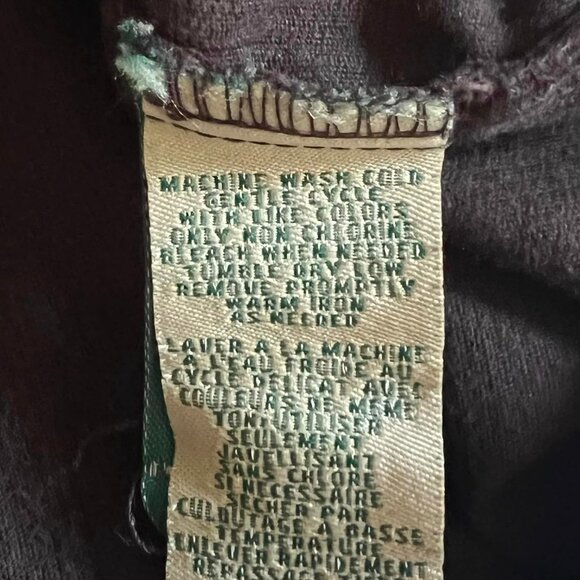 MACHINE WASH COLD
GENTLE CYCLE
WITH LIKE COLORS
ONLY NON CHLORINE
BLEACH WHEN NEEDED
TUMBLE DRY LOW
REMOVE PROMPTLY
WARM IRON
AS NEEDED
LAVER A LA MACHINE
A L'EAU FROIDE AU
CYCLE DELICAT AVEC
COULEURS DE MEME
TON UTILISER
SEULEMENT
JAVELLISANT
SANS CHLORE
SI NECESSAIRE
SECHER PAR
CULBUTAGE A BASSE
TEMPERATURE
ENLEVER RAPIDEMENT
REPASSAGE